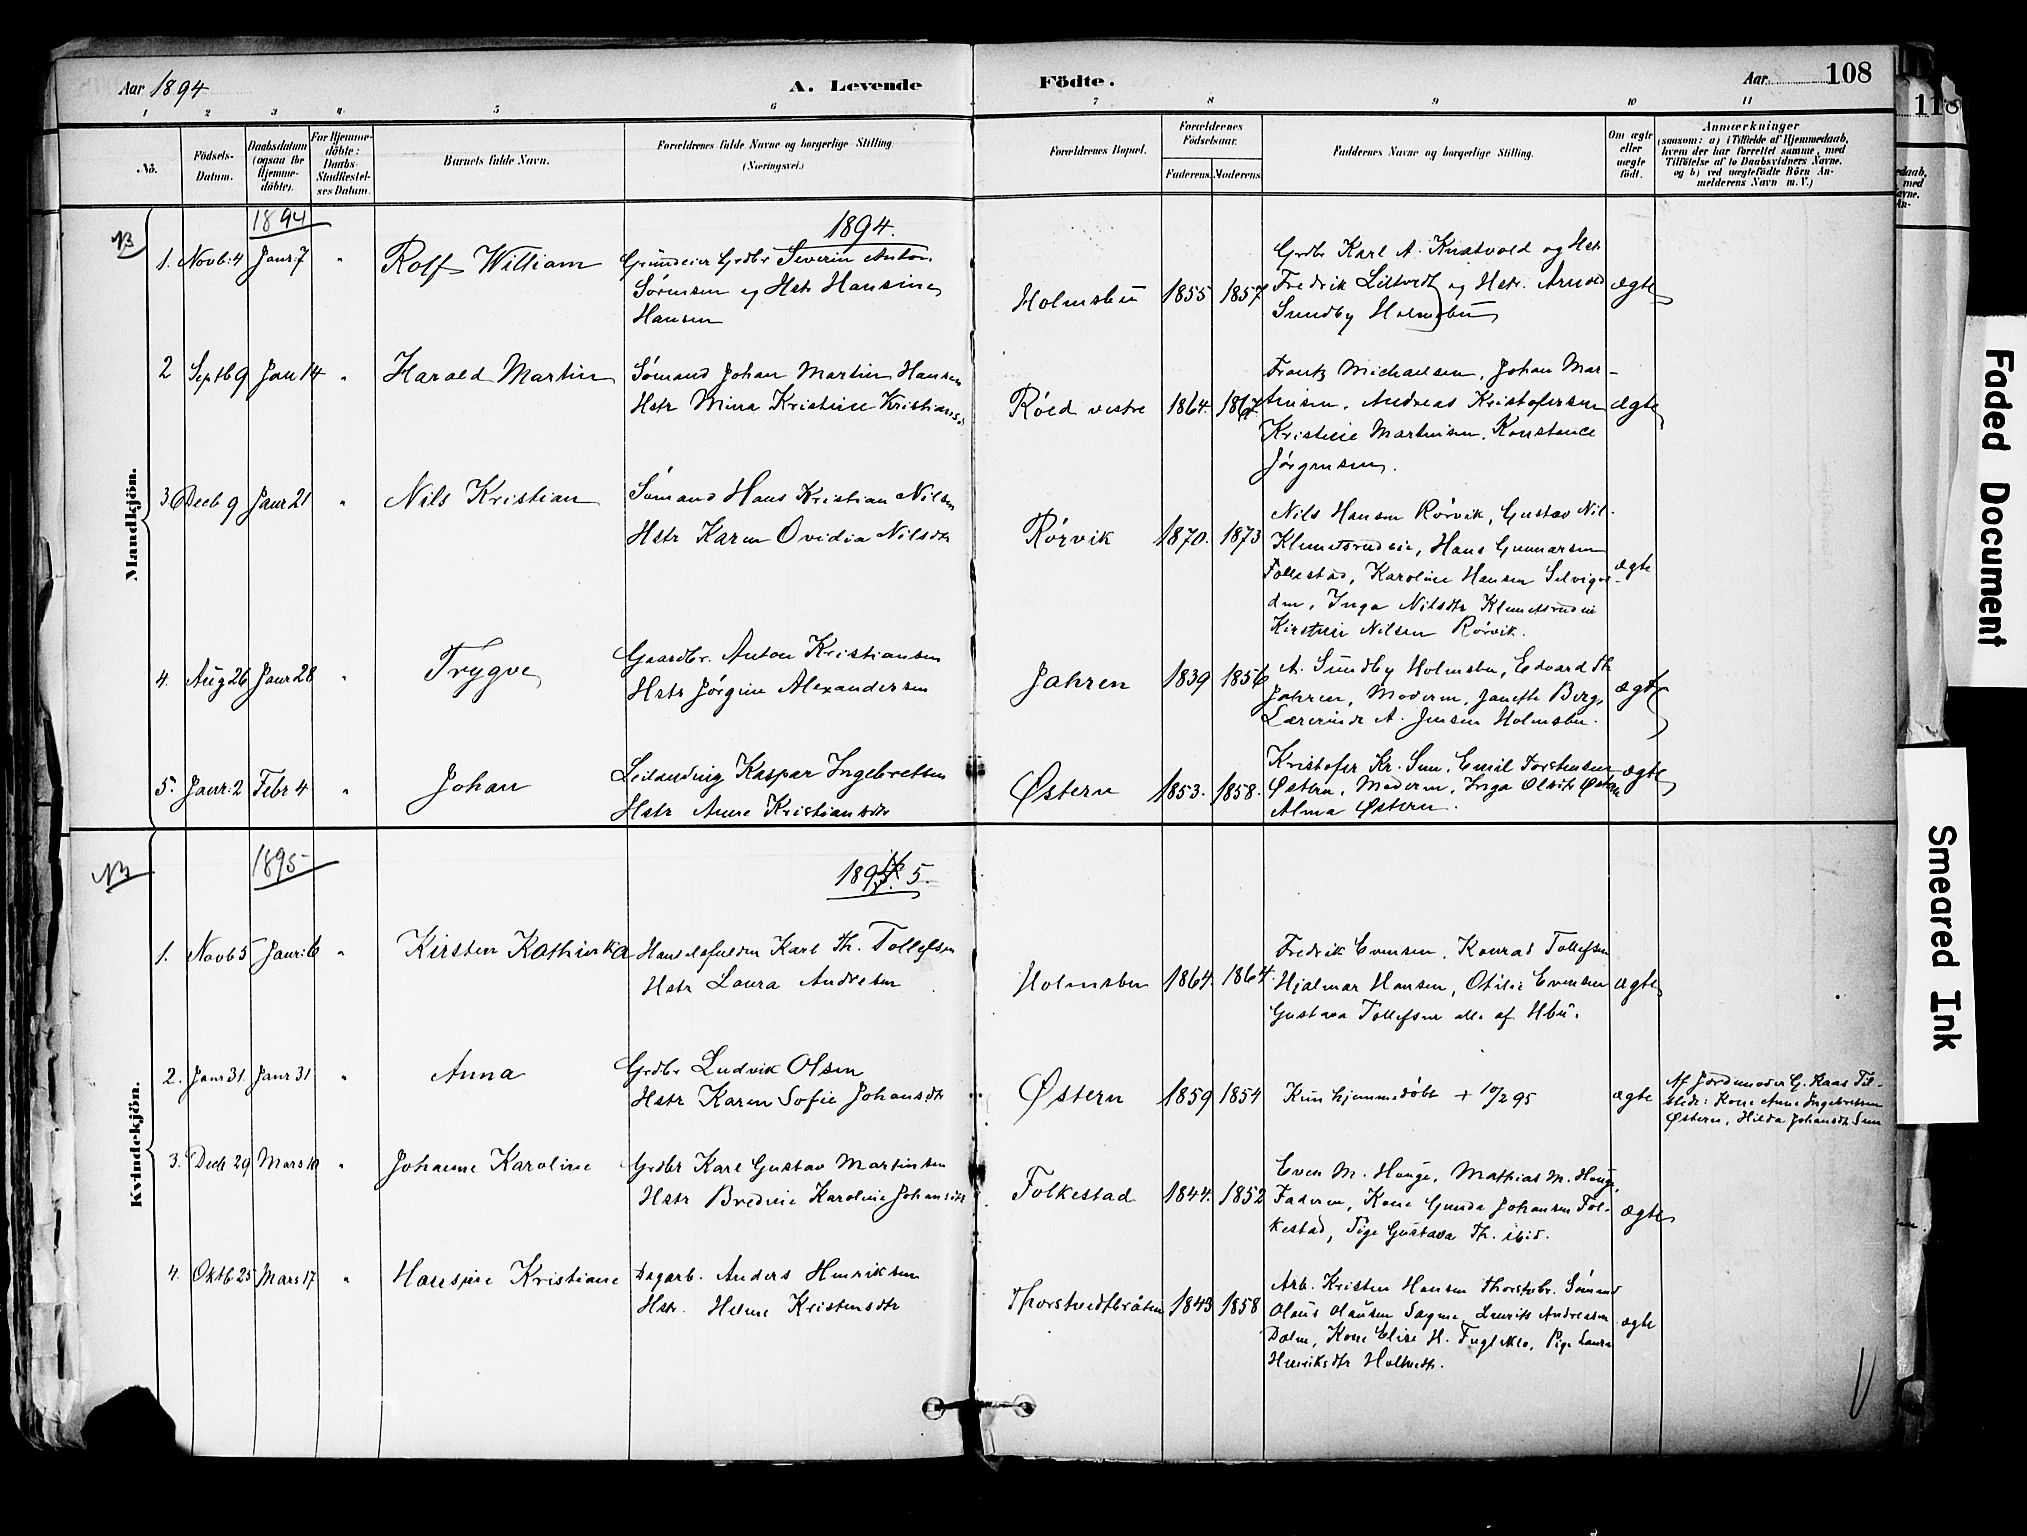 Aar 1894
A. Levende Födte.
Aar. 108
118
1 2 3 4 5 6 7 8 9 10 11
No.
Födsels-Datum.
Daabsdatum (ogsaa for Hjemme-döbte).
For Hjemme-döbte: Daabs-Stadfæstel-ses Datum.
Barnets fulde Navn.
Forældrenes fulde Navne og borgerlige Stilling. (Næringsvei.)
Forældrenes Bopæl.
Forældrenes Födselsaar.
Faderens. Moderens.
Faddernes Navne og borgerlige Stilling.
Om ægte eller uægte födt.
Anmærkninger
(saasom: a) i Tilfælde af Hjemmedaab, hvem der har forrettet samme, med Tilföielse af to Daabsvidners Navne, og b) ved uægtefödte Börn Anmelderens Navn m. V.)
Mandkjön.
NB 1894 1894.
1. Novb: 4 Janr: 7 " Rolf William
Grundeier Grdbr Severin Anton
Sørensen og Hstr Hansine
Hansen
Holmsbu 1855 1857
Grdbr Karl A. Knatvold og Hstr.
Fredrik Liltvedt og Hstr. Arnold
Sundby Holmsbu
ægte
2 Septb 9 Janr 14 " Harald Martin
Sømand Johan Martin Hansen
Hstr Mina Kristine Kristians
Røed vestre 1864. 1867.
Frantz Michaelsen, Johan Mar-
tinsen, Andreas Kristofersen
Kristine Martinsen, Konstance
Jørgensen.
ægte
3 Decb 9 Janr 21 " Nils Kristian
Sømand Hans Kristian Nilsen
Hstr Karen Ovidia Nilsdtr
Rørvik 1870. 1873
Nils Hansen Rørvik, Gustav Nil-
Klemetsrudeie, Hans Gunnarsen
Follestad, Karoline Hansen Selvig
Inga Nilsdtr Klemetsrudeie
Kirstine Nilsen Rørvik.
ægte
4. Aug 26 Janr 28 " Trygve
Gaardbr. Anton Kristiansen
Hstr Jørgine Alexandersen
Jahren 1839 1856
A. Sundby Holmsbu, Edvard Th
Jahren, Moderen, Janette Berg,
Lærerinde A. Jensen Holmsbu.
ægte
5. Janr: 2 Febr 4 " Johan
Leilænding Kaspar Ingebretsen
Hstr Anne Kristiansdtr
Østern 1853. 1858.
Kristofer Kr. Sun, Emil Torstensen
Østern, Moderen, Inga Olsdtr Østern
Alma Østern.
ægte
Kvindekjön.
NB 1895 1895.
1. Novb 5 Janr: 6 " Kirsten Kathinka
Handelsfuldm Karl Th. Tollefsen
Hstr Laura Andresen
Holmsbu 1864. 1864.
Fredrik Evensen, Konrad Tollefsen
Hjalmar Hansen, Otilie Evensen
Gustava Tollefsen alle af Hbu.
ægte
2. Janr 31. Janr 31 " Anna
Grdbr Ludvik Olsen
Hstr Karen Sofie Johansdtr
Østern 1859 1854
Kun hjemmedøbt + 10/2 95
ægte
Af Jordmoder G. Kaas Til-
stede: Kone Anne Ingebretsen
Østern, Hilda Johansdtr Sun
3. Decb 29 Mars 10 " Johanne Karoline
Grdbr Karl Gustav Martinsen
Hstr Bredine Karoline Johansdtr
Folkestad 1844. 1852
Even M. Houge, Mathias M. Houge,
Faderen, Kone Gunda Johansen Fol-
kestad, Pige Gustava Th. ibid.
ægte
4. Oktb. 25 Mars 17 " Hansine Kristiane
Dagarb. Anders Henriksen
Hstr. Helene Kristensdtr
Thorstvedtbråten 1843 1858
Arb. Kristen Hansen Thorstvbr. Sømand
Olaus Olausen Sagene, Laurits Andresen
Dalen, Kone Elise H. Pige Laura
Henriksdtr Holtvedt.
ægte
Faded Document
Smeared Ink